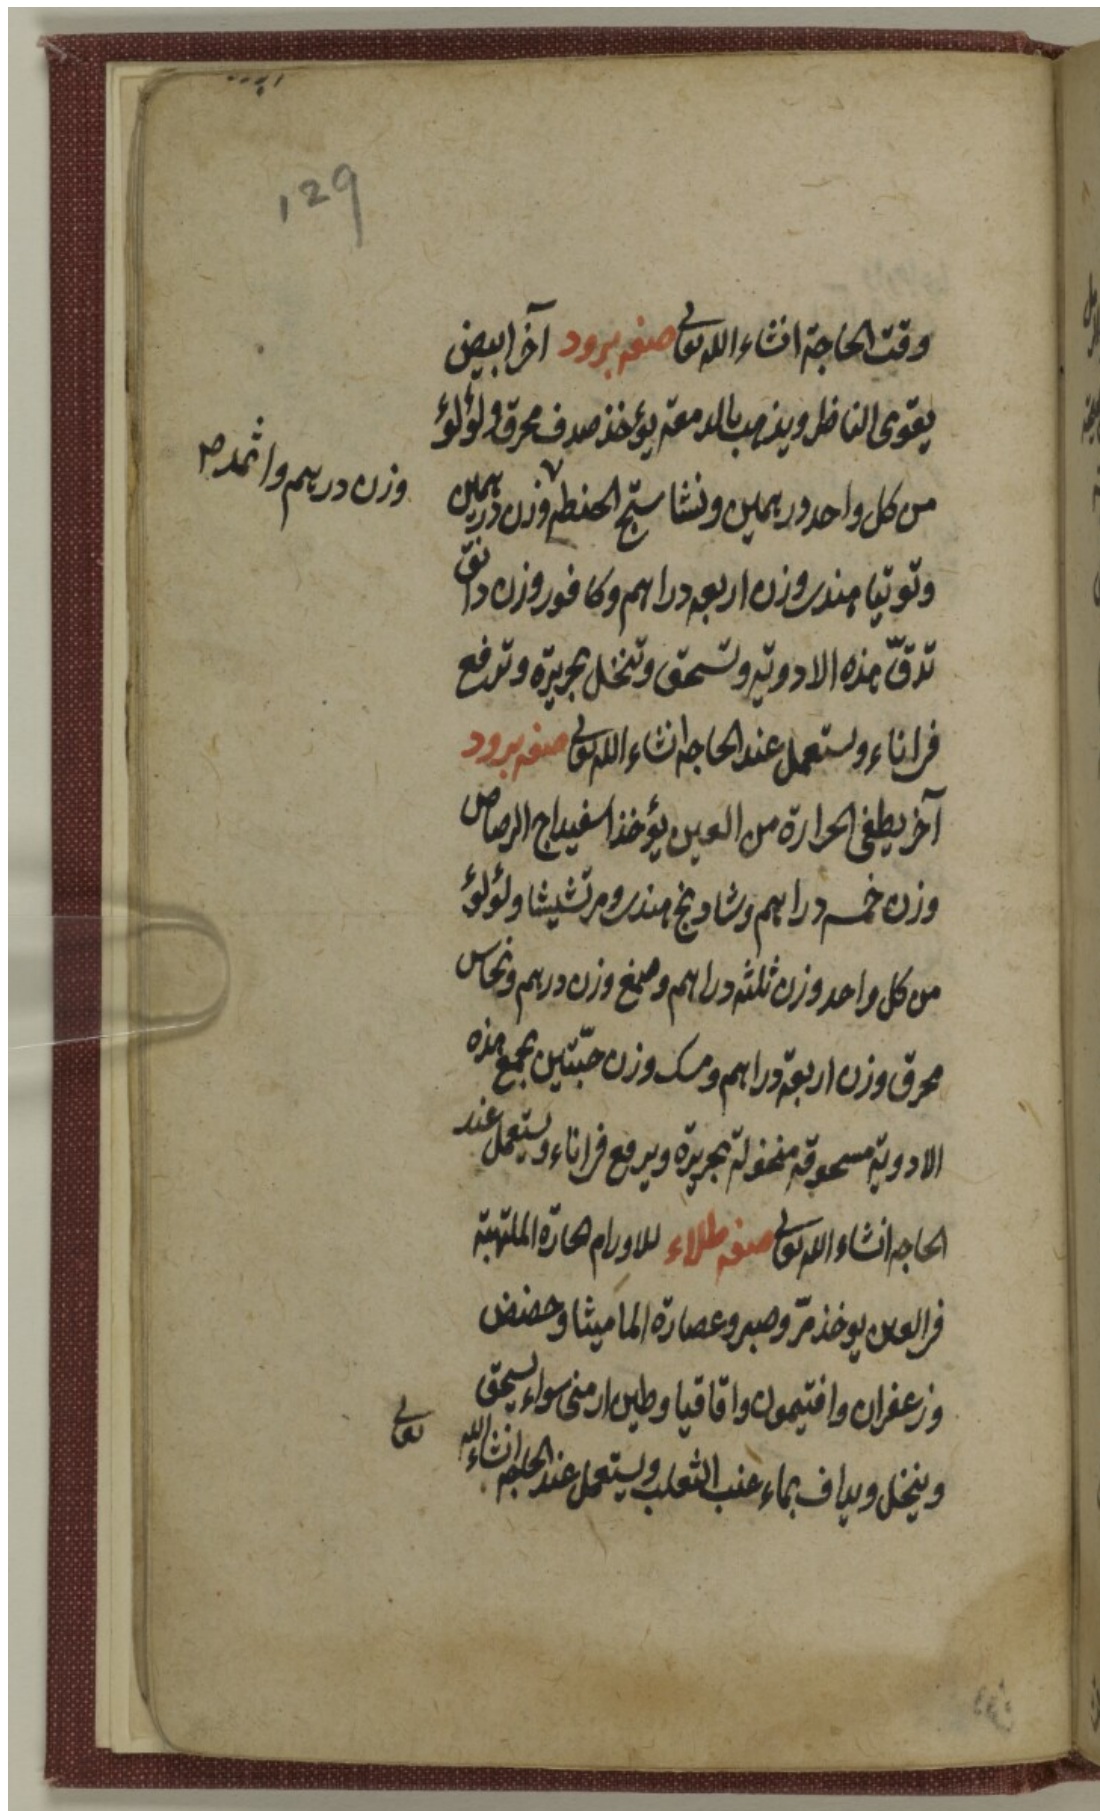 129
وقت الحاجة انشاء الله تعالى صفه برود آخر ابيض
يقوى الناظر ويذهب بالدمعة يؤخذ صدف محرق ولؤلؤ
من كل واحد درهمين ونشاستج الحنطه وزن درهمين
وزن درهم واثمد صح
وتوتيا هندى وزن اربعه دراهم وكافور وزن دانق
تدقّ هذه الادويه وتسحق وتنخل بحريرة وترفع
فى اناء ويستعمل عند الحاجه انشاء الله تعالى صفه برود
آخر يطفى الحرارة من العين يؤخذ اسفيداج الرصاص
وزن خمسه دراهم وشادنج هندى ومرتشيشا ولؤلؤ
من كل واحد وزن ثلثه دراهم وصمغ وزن درهم ونحاس
محرق وزن اربعة دراهم ومسك وزن حبّتين يجمع هذه
الادوية مسحوقه منخولة بحريرة ويرفع فى اناء ويستعمل عند
الحاجه انشاء الله تعالى صفه طلاء للاورام الحارّة الملتهبة
فى العين يوخذ مرّ وصبر وعصارة الماميثا وحضض
وزعفران وافتيمون واقاقيا وطين ارمنى سواء يسحق
وينخل ويداف بماء عنب الثعلب ويستعمل عند الحاجه انشاء الله تعالى